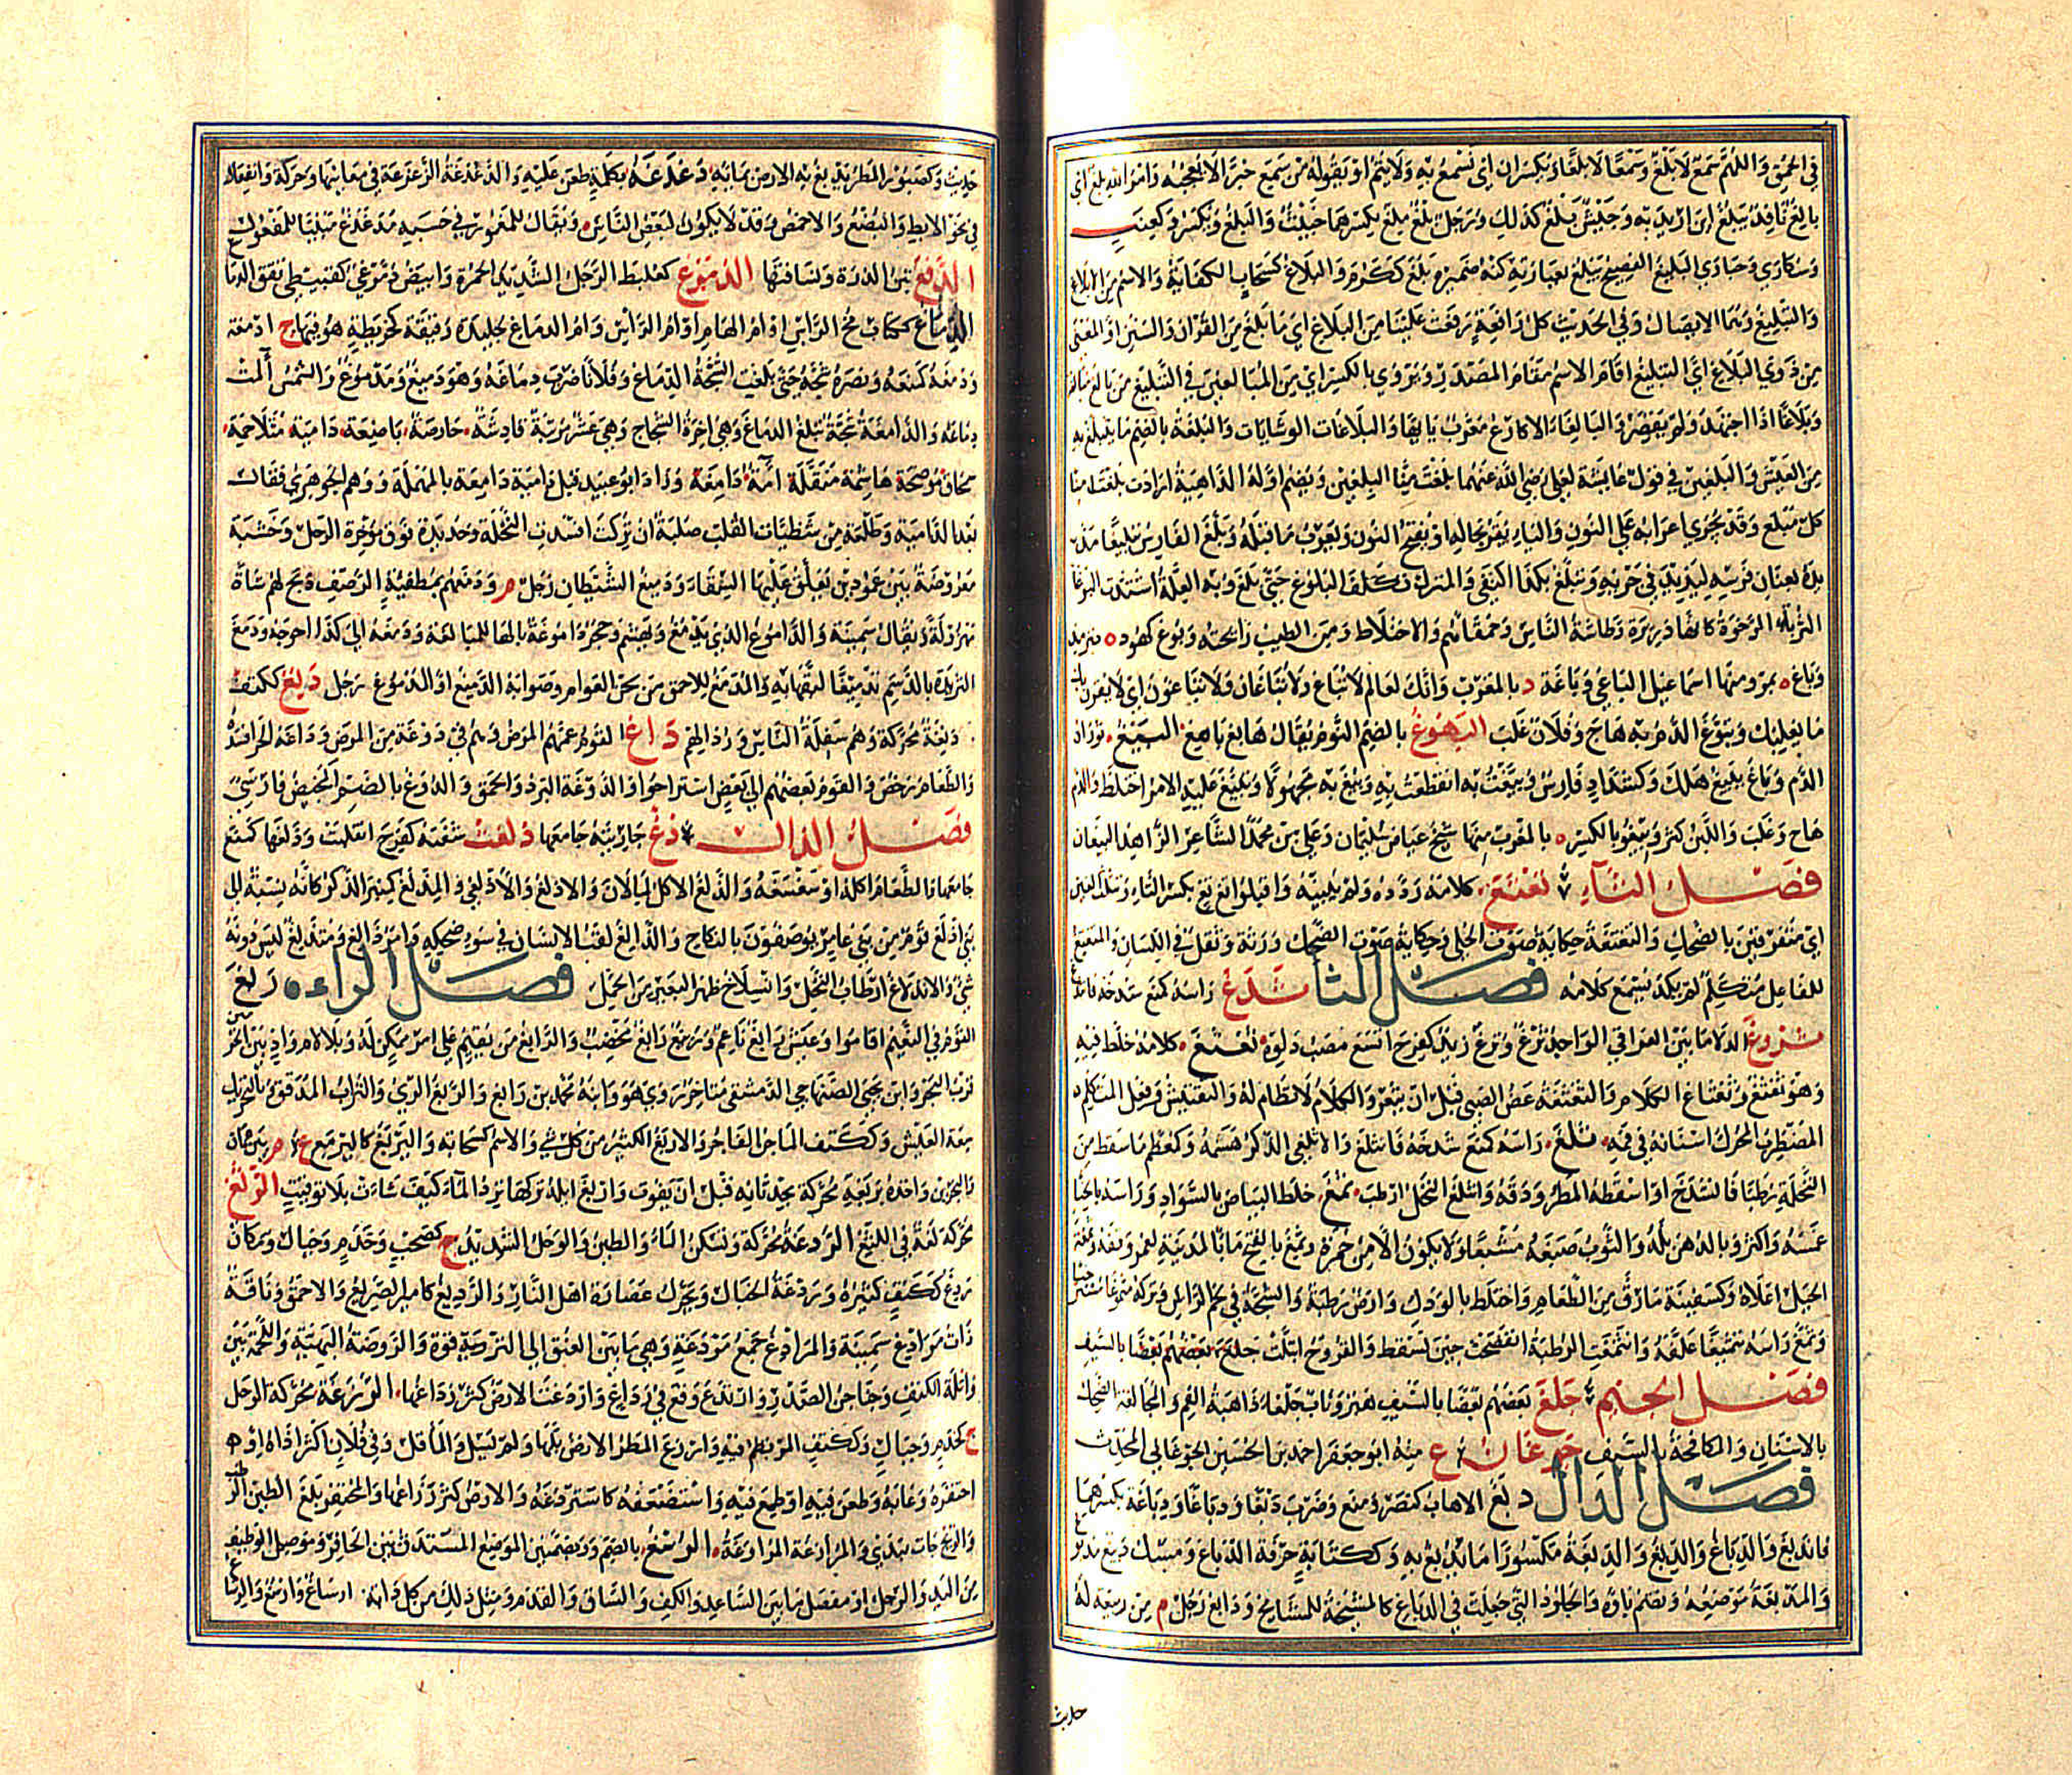 في الحمق واللهم سمع لا بلغ وسمعا لا بلغا ويكسران اي نسمع به ولا يتم او يقوله من سمع خبرا لا يعجبه وامر الله بلغ اي
بالغ نافذ يبلغ اين اريد به وجيش بلغ كذلك ورجل بلغ ملغ بكسرهما خبيث والبلغ ويكسر وكعنب
وسكارى وحبارى البليغ الفصيح يبلغ بعبارته كنه ضميره بلغ ككرم والبلاغ كسحاب الكفاية والاسم من الابلاغ
والتبليغ وهما الايصال وفي الحديث كل رافعة رفعت علينا من البلاغ اي ما بلغ من القرآن والسنن او المعنى
من ذوي البلاغ اي التبليغ اقام الاسم مقام المصدر ويروى بالكسر اي من المبالغين في التبليغ من بالغ مبالغة
وبلاغا اذا اجتهد ولم يقصر والبالغاء الاكارع معرب پايها والبلاغات الوشايات والبلغة بالضم ما يتبلغ به
من العيش والبلغين في قول عائشة لعلي رضي الله عنهما بلغت منا البلغين ويضم اوله الداهية ارادت بلغت منا
كل مبلغ وقد يجري اعرابه على النون والياء يقر بحاله او يفتح النون ويعرب ما قبله وبلغ الفارس تبليغا مد
يده بعنان فرسه ليزيد في جريه وتبلغ بكذا اكتفى والمنزل تكلف البلوغ حتى بلغ وبه العلة اشتدت البوغاء
التربة الرخوة كانها ذريرة وطاشة الناس وحمقاؤهم والاختلاط ومن الطيب رائحته وبوغ كهود ة بترمذ
وباغ ة بمرو منها اسماعيل الباغي وباغة د بالمغرب وانك لعالم لا تباغ ولا تباغان ولا تباغون اي لا يقرن بك
ما يغلبك وتبوغ الدم به هاج وفلان غلب البهوغ بالضم النوم يقال هابغ باهغ البيغ ثوران
الدم وباغ يبيغ هلك وكشداد فارس وبيغت به انقطعت به وبيغ به مجهولا وتبيغ عليه الامر اختلط والدم
هاج وغلب واللبن كثر وبيغو بالكسر ة بالمغرب منها شيخ عياض سليمان وعلي بن محمد الشاعر الزاهد البيغيان
فصل التاء تغتغ كلامه ردده ولم يبينه واقبلوا تغ تغ بكسر التاء وتثلث الغين
اي متفرقين بالضحك والتغتغة حكاية صوت الحلي وحكاية صوت الضحك ورتة وثقل في اللسان والمتغتغ
للفاعل متكلم لم يكد يسمع كلامه فصل الثا ثدغ راسه كمنع شدخه فانثدغ
ثروغ الدلاء ما بين العراقي الواحد ثرغ وثرغ زيد كفرح اتسع مصب دلوه ثغثغ كلامه خلط فيه
وهو ثغثغ وثغثاغ الكلام والثغثغة عض الصبي قبل ان يثغر والكلام لا نظام له والتفتيش وفعل المتكلم
المضطرب المحرك اسنانه في فمه ثلغ راسه كمنع شدخه فانثلغ والاثلغي الذكر هشمه وكمعظم ما سقط من
النخلة رطبا فانشدخ او اسقطه المطر ودقه وانثلغ النخل ارطب ثمغ خلط البياض بالسواد وراسه بالحنا
غمسه واكثر وبالدهن بله والثوب صبغه مشبعا ولا يكون الا من حمرة وثمغ بالفتح مال بالمدينة لعمر وقفه وثمغة
الجبل اعلاه وكسفينة ما رق من الطعام واختلط بالودك وارض رطبة والشجة في لحم الراس وتركه مثموغا
وثمغ راسه تثميغا غلفه وانثمغت الرطبة انفضخت حين تسقط والقروح ابتلت جلغ بعضهم بعضا بالسيف
فصل الجيم جلغ بعضهم بعضا بالسيف هبر وناب جلغاء ذاهبة الفم والمجالغة الضحك
بالاسنان والمكافحة بالسيف جوغان ع منه ابو جعفر احمد بن الحسين الجوغاني المحدث
فصل الدال دبغ الاهاب كنصر ومنع وضرب دبغا ودباغا ودباغة بكسرهما
فاندبغ والدباغ والدبغ والدبغة مكسورا ما يدبغ به وككتابة حرفة الدباغ ومسك دبيغ مدبوغ
والمدبغة موضعه وتضم باؤه والجلود التي جعلت في الدباغ كالمشيخة للمشايخ ودابغ رجل م من ربيعة له
حديث
حديث وكصبور المطر يدبغ به الارض بمائه دغدغه بكلمة طعن عليه والدغدغة الزعزعة في معانيها وحركة وانفعال
في نحو الابط والبضع والاخمص وقد لا يكون لبعض الناس ويقال للمغموز في حسبه مدغدغ مبنيا للمفعول
الدفغ تبن الذرة ونسافتها الدمرغ كعلبط الرجل الشديد الحمرة وابيض دمرغي كقبيطي يقق الدما
الدماغ ككتاب مخ الراس او ام الهام او ام الراس وام الدماغ جليدة رقيقة كخريطة هو فيها ج ادمغة
ودمغه كمنعه ونصره شجه حتى بلغت الشجة الدماغ وفلانا ضرب دماغه وهو دميغ ومدموغ والشمس آلمت
دماغه والدامغة شجة تبلغ الدماغ وهي اخرة الشجاج وهي عشر مرتبة قاشرة حارصة باضعة دامية متلاحمة
سمحاق موضحة هاشمة منقلة آمة دامغة وزاد ابو عبيد قبل دامية دامعة بالمهملة ووهم الجوهري فقال
بعد الدامية وطلعة من شظيات القلب صلبة ان تركت افسدت النخلة وحديدة فوق مؤخرة الرحل وخشبة
معروضة بين عمودين يعلق عليها السقاء ودميغ الشيطان رجل م ودمغهم بمطفئة الرضف ذبح لهم شاة
مهزولة ويقال سمينة والداموغ الذي يدمغ ويهشم وحجر داموغة والهاء للمبالغة ودمغه الى كذا احوجه ودمغ
الثريدة بالدسم تدميغا لبقها به والمدمغ للاحمق من لحن العوام وصوابه الدميغ او المدموغ رجل دنغ ككتف
دنغة محركة وهم سفلة الناس ورذالهم داغ القوم عمهم المرض وهم في دوغة من المرض وداغه الحر افسده
والطعام رخص والقوم بعضهم الى بعض استراحوا والدوغة البرد والحمق والدوغ بالضم المخيض فارسي
فصل الذال ذغ جاريته جامعها ذلغت شفته كفرح انقلبت وذلغها كمنع
جامعها والطعام اكله او سغسغه والذلغ الاكل لما لان والاذلغ والاذلغي والمذلغ كمنبر الذكر كانه نسبة الى
بني اذلغ قوم من بني عامر يوصفون بالنكاح والذالغ لقب الانسان في سوء ضحكه وامر ذالغ ومنذلغ ليس دونه
شيء والاندلاغ ارطاب النخل وانسلاخ ظهر البعير من الحمل فصل الراء ه ربغ
القوم في النعيم اقاموا وعيش رابغ ناعم وربيع رابغ مخصب والرابغ من يقيم على امر ممكن له وبلا لام واد بين الحرمين
قرب البحر وابن يحيى الصنهاجي الدمشقي متاخر روى هو وابنه محمد بن رابغ والربغ الري والتراب المدقق وبالتحريك
سعة العيش وككتف الماجن الفاجر والاربغ الكثير من كل شيء والاسم كسحابة واليربغ كاليرمع ع م بين عمان
والبحرين واخذه بربغه محركة بحدثانه قبل ان يفوت واربغ ابله تركها ترد الماء كيف شاءت بلا توقيت الرثغ
محركة لغة في اللثغ الردغة محركة وتسكن الماء والطين والوحل الشديد ج كصحب وخدم وجبال ومكان
ردغ ككتف كثيره وردغة الخبال ويحرك عصارة اهل النار والرديغ كامير الصريع والاحمق وناقة
ذات مرادغ سمينة والمرادغ جمع مردغة وهي ما بين العنق الى الترقوة والروضة البهية واللحمة بين
وابلة الكتف وجناجن الصدر وارتدغ وقع في رداغ واردغت الارض كثر رداغها الرزغة محركة الوحل
ج كخدم وجبال وككتف المرتطم فيه وارزغ المطر الارض بلها ولم تسل والماء قل وفي فلان اكثر اذاه او
احتقره وعابه وطعن فيه او طمع فيه واستضعفه كاسترزغه والارض كثر رزاغها والمحتفر بلغ الطين الرطب
والريح جات بندى والمرازغة المراوغة الرسغ بالضم وبضمتين الموضع المستدق بين الحافر وموصل الوظيف
من اليد والرجل او مفصل ما بين الساعد والكف والساق والقدم ومثل ذلك من كل دابة ارساغ وارسغ والرساغ